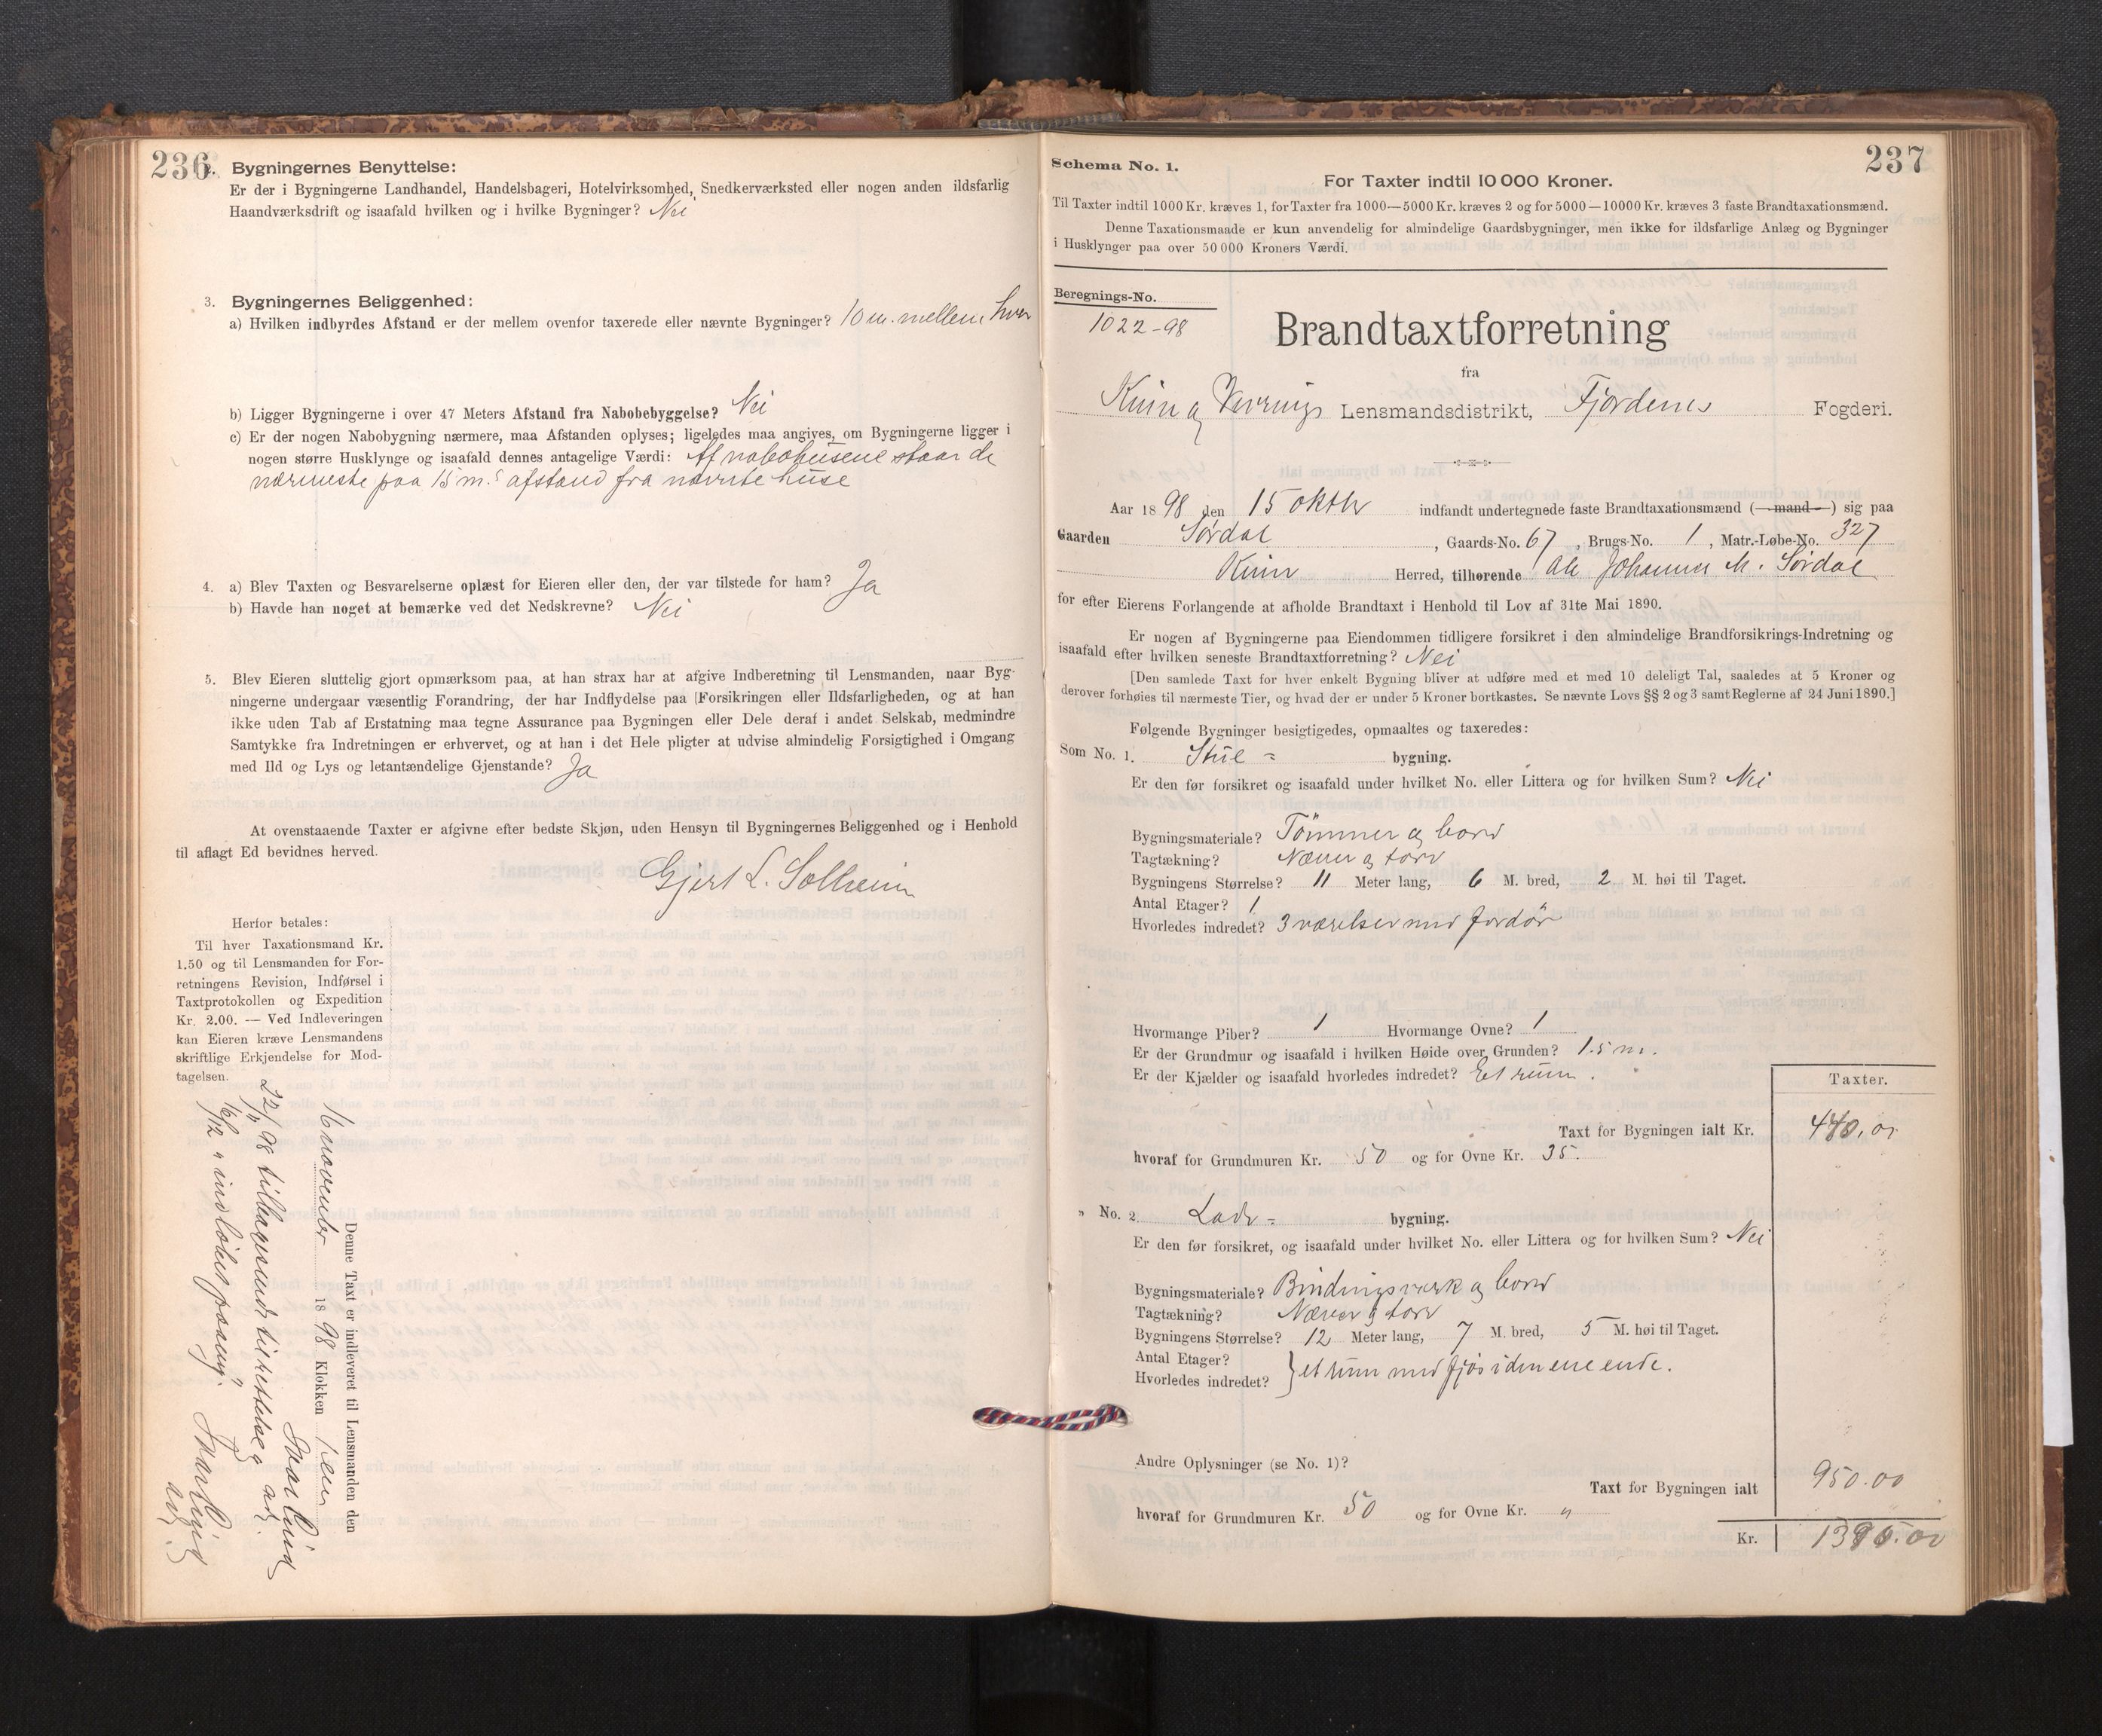 236
2. Bygningernes Benyttelse:
Er der i Bygningerne Landhandel, Handelsbageri, Hotelvirksomhed, Snedkerværksted eller nogen anden ildsfarlig
Haandværksdrift og isaafald hvilken og i hvilke Bygninger? Nei
3. Bygningernes Beliggenhed:
a) Hvilken indbyrdes Afstand er der mellem ovenfor taxerede eller nævnte Bygninger? 10 m. mellem hver
b) Ligger Bygningerne i over 47 Meters Afstand fra Nabobebyggelse? Nei
c) Er der nogen Nabobygning nærmere, maa Afstanden oplyses; ligeledes maa angives, om Bygningerne ligger i
nogen større Husklynge og isaafald dennes antagelige Værdi: Af nabohusene staar de
nærmeste paa 15 m.s afstand fra nævnte huse
4. a) Blev Taxten og Besvarelserne oplæst for Eieren eller den, der var tilstede for ham? Ja
b) Havde han noget at bemærke ved det Nedskrevne? Nei
5. Blev Eieren sluttelig gjort opmærksom paa, at han strax har at afgive Indberetning til Lensmanden, naar Byg-
ningerne undergaar væsentlig Forandring, der har Indflydelse paa Forsikringen eller Ildsfarligheden, og at han
ikke uden Tab af Erstatning maa tegne Assurance paa Bygningen eller Dele deraf i andet Selskab, medmindre
Samtykke fra Indretningen er erhvervet, og at han i det Hele pligter at udvise almindelig Forsigtighed i Omgang
med Ild og Lys og letantændelige Gjenstande? Ja
At ovenstaaende Taxter er afgivne efter bedste Skjøn, uden Hensyn til Bygningernes Beliggenhed og i Henhold
til aflagt Ed bevidnes herved.
Gjert L. Solheim
Herfor betales:
Til hver Taxationsmand Kr.
1.50 og til Lensmanden for For-
retningens Revision, Indførsel i
Taxtprotokollen og Expedition
Kr. 2.00. — Ved Indleveringen
kan Eieren kræve Lensmandens
skriftlige Erkjendelse for Mod-
tagelsen.
Denne Taxt er indleveret til Lensmanden den
6 november 1898 Klokken
22/11 98 tilbagesendt til rettelse
16/12 " indløbet paany.
237
Schema No. 1.
For Taxter indtil 10 000 Kroner.
Til Taxter indtil 1000 Kr. kræves 1, for Taxter fra 1000—5000 Kr. kræves 2 og for 5000—10000 Kr. kræves 3 faste Brandtaxationsmænd.
Denne Taxationsmaade er kun anvendelig for almindelige Gaardsbygninger, men ikke for ildsfarlige Anlæg og Bygninger
i Husklynger paa over 50 000 Kroners Værdi.
Beregnings-No.
1022-98
Brandtaxtforretning
fra
Kinn og Vevrings Lensmandsdistrikt, Fjordenes Fogderi.
Aar 1898 den 15 oktbr indfandt undertegnede faste Brandtaxationsmænd (mand) sig paa
Gaarden Sørdal, Gaards-No. 67, Brugs-No. 1, Matr.-Løbe-No. 327
Kinn Herred, tilhørende Johannes M. Sørdal
for efter Eierens Forlangende at afholde Brandtaxt i Henhold til Lov af 31te Mai 1890.
Er nogen af Bygningerne paa Eiendommen tidligere forsikret i den almindelige Brandforsikrings-Indretning og
isaafald efter hvilken seneste Brandtaxtforretning? Nei
[Den samlede Taxt for hver enkelt Bygning bliver at udføre med et med 10 deleligt Tal, saaledes at 5 Kroner og
derover forhøies til nærmeste Tier, og hvad der er under 5 Kroner bortkastes. Se nævnte Lovs §§ 2 og 3 samt Reglerne af 24 Juni 1890.]
Følgende Bygninger besigtigedes, opmaaltes og taxeredes:
Som No. 1. Stue= bygning.
Er den før forsikret og isaafald under hvilket No. eller Littera og for hvilken Sum? Nei
Bygningsmateriale? Tømmer og bord
Tagtækning? Næver og torv
Bygningens Størrelse? 11 Meter lang, 6 M. bred, 2 M. høi til Taget.
Antal Etager? 1
Hvorledes indredet? 3 værelser med fordør
Hvormange Piber? 1 Hvormange Ovne? 1
Er der Grundmur og isaafald i hvilken Høide over Grunden? 1.5 m.
Er der Kjælder og isaafald hvorledes indredet? Et rum.
Taxter.
Taxt for Bygningen ialt Kr. 440,00
hvoraf for Grundmuren Kr. 50 og for Ovne Kr. 35.
" No. 2. Lade= bygning.
Er den før forsikret, og isaafald under hvilket No. eller Littera og for hvilken Sum? Nei
Bygningsmateriale? Bindingsværk og bord
Tagtækning? Næver og torv
Bygningens Størrelse? 12 Meter lang, 7 M. bred, 5 M. høi til Taget.
Antal Etager?
Hvorledes indredet? } et rum med fjøs i den ene ende.
Andre Oplysninger (se No. 1)?
Taxt for Bygningen ialt 950.00
hvoraf for Grundmuren Kr. 50 og for Ovne Kr. "
Kr. 1390.00